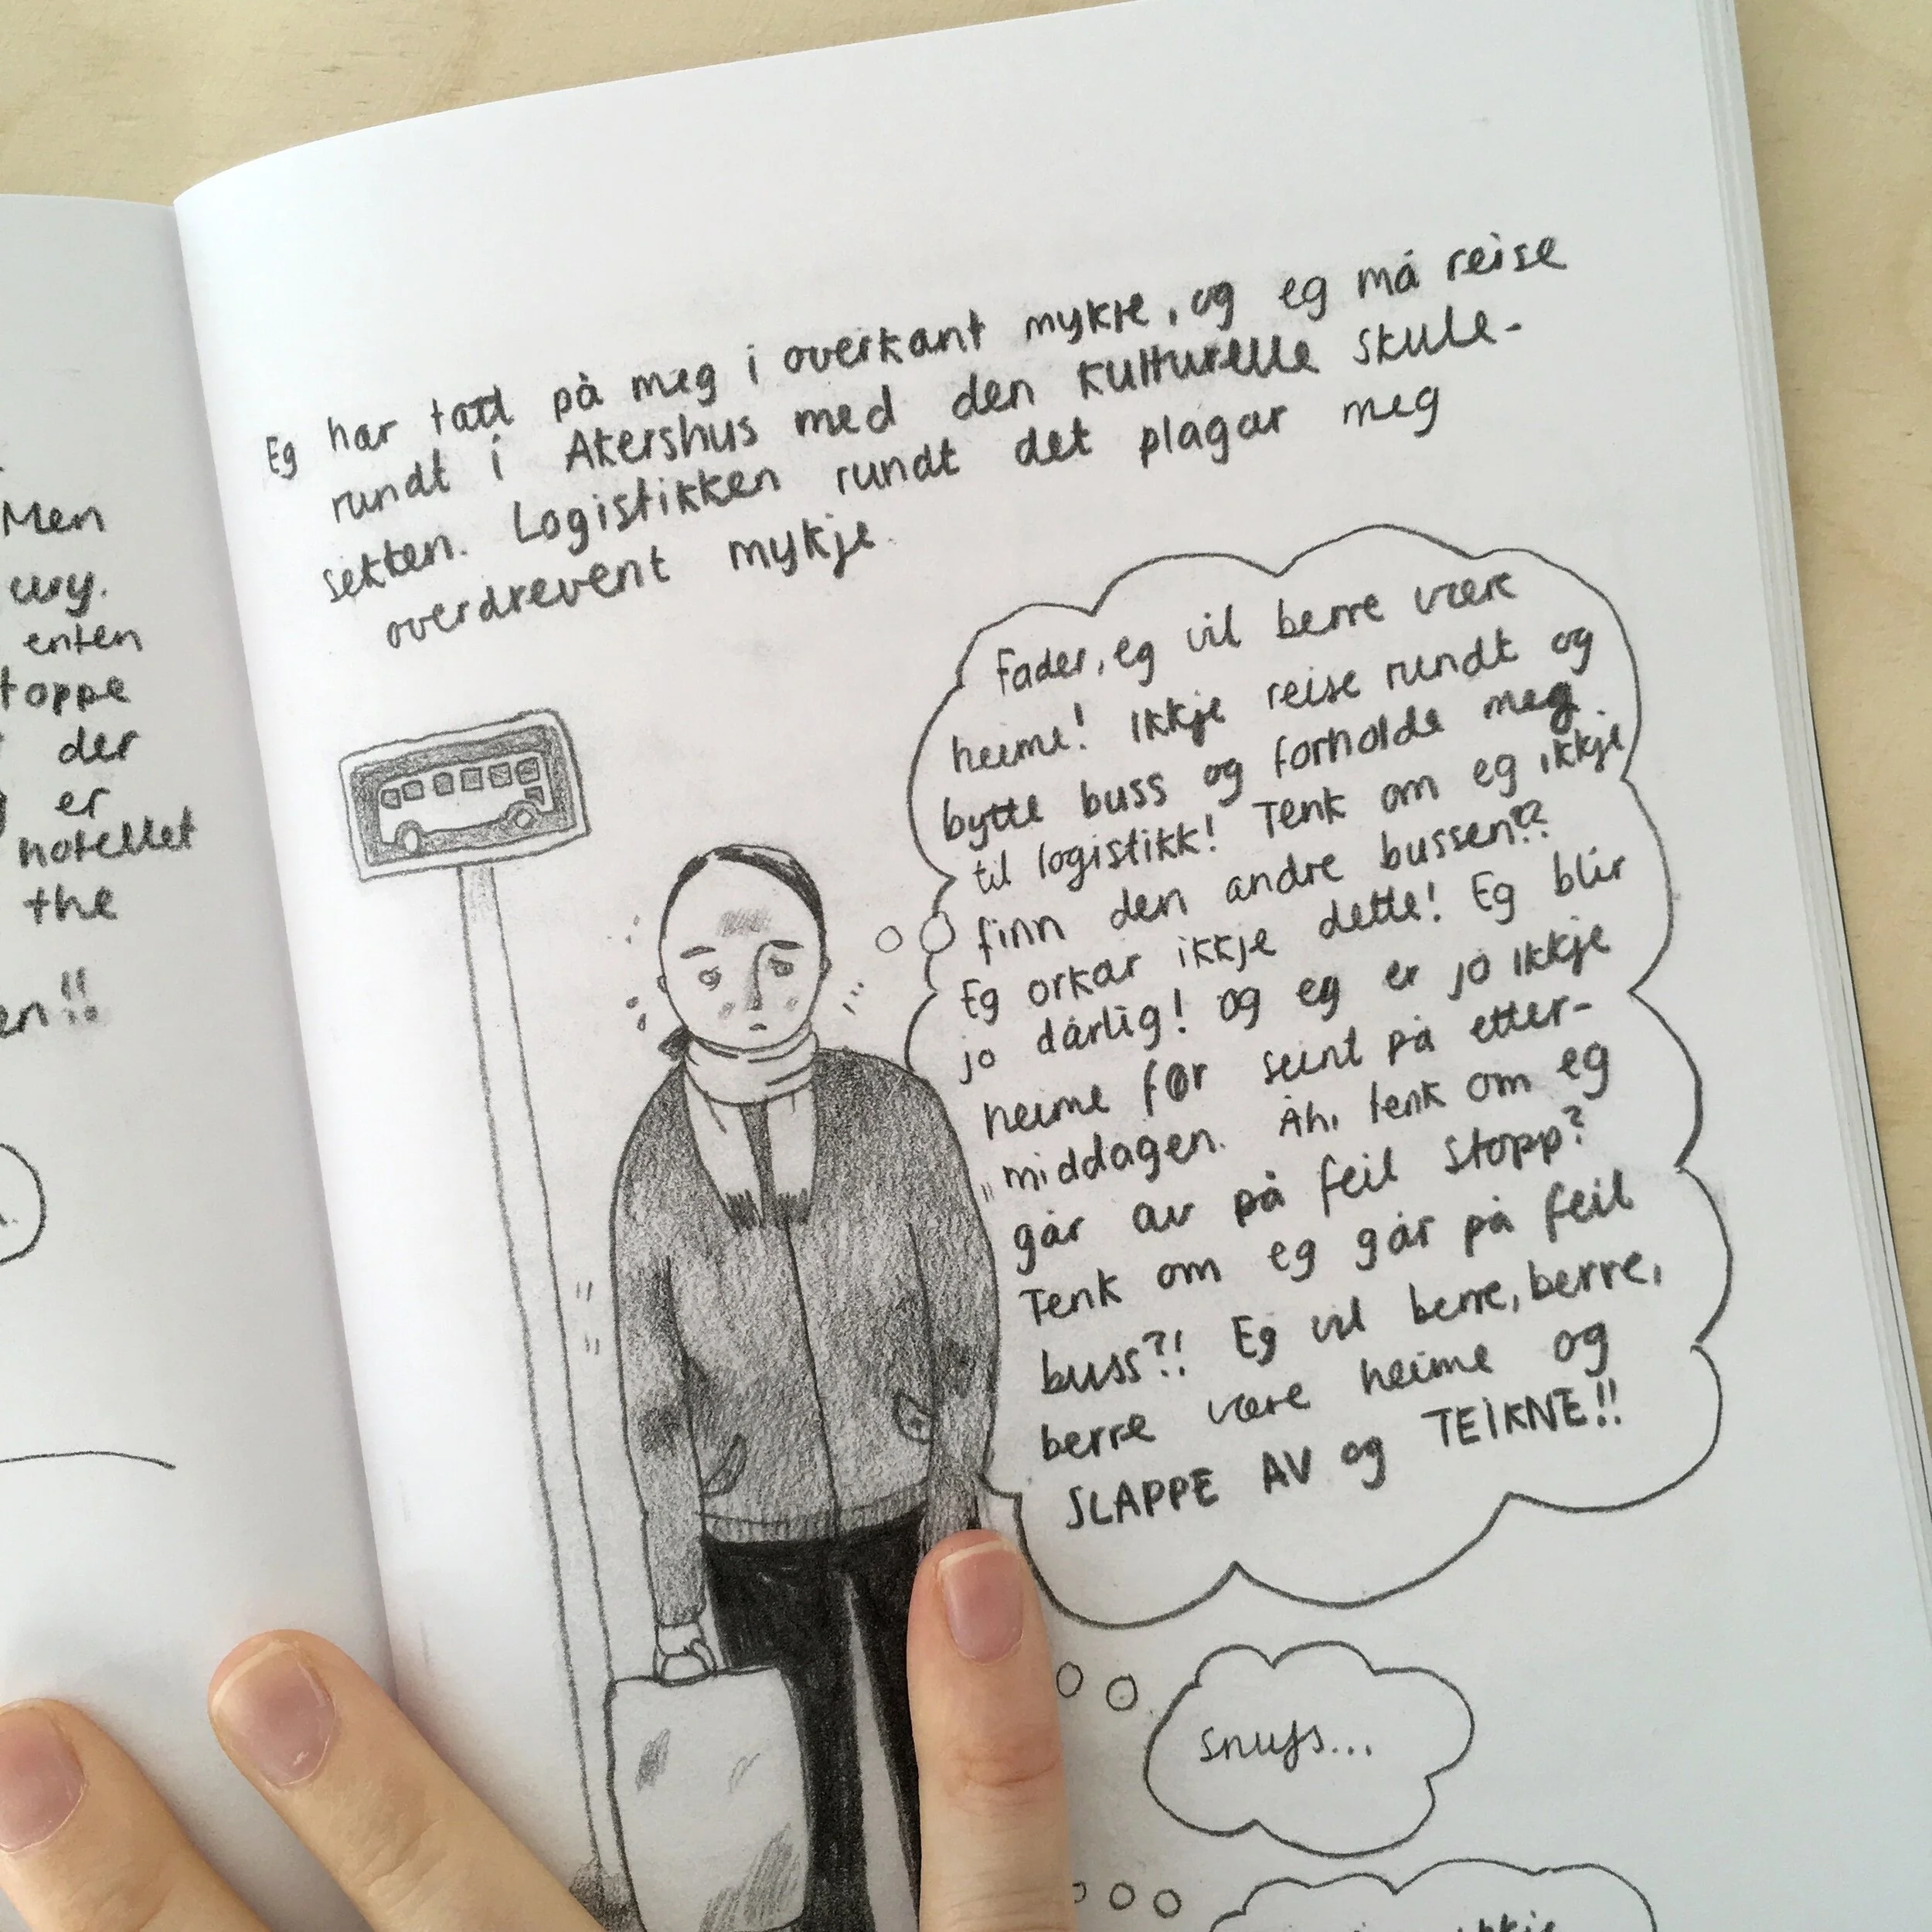 Men
enten
der
er
hotellet
the
Eg har tatt på meg i overkant mykje, og eg må reise
rundt i Akershus med den kulturelle skule-
sekken. Logistikken rundt det plagar meg
overdrevent mykje.
Fader, eg vil berre være
heime! Ikkje reise rundt og
bytte buss og forholde meg
til logistikk! Tenk om eg ikkje
finn den andre bussen!?
Eg orkar ikkje dette! Eg blir
jo dårlig! Og eg er jo ikkje
heime før seint på etter-
middagen. Åh, tenk om eg
går av på feil stopp?
Tenk om eg går på feil
buss?! Eg vil berre, berre,
berre være heime og
SLAPPE AV og TEIKNE!!
snufs...